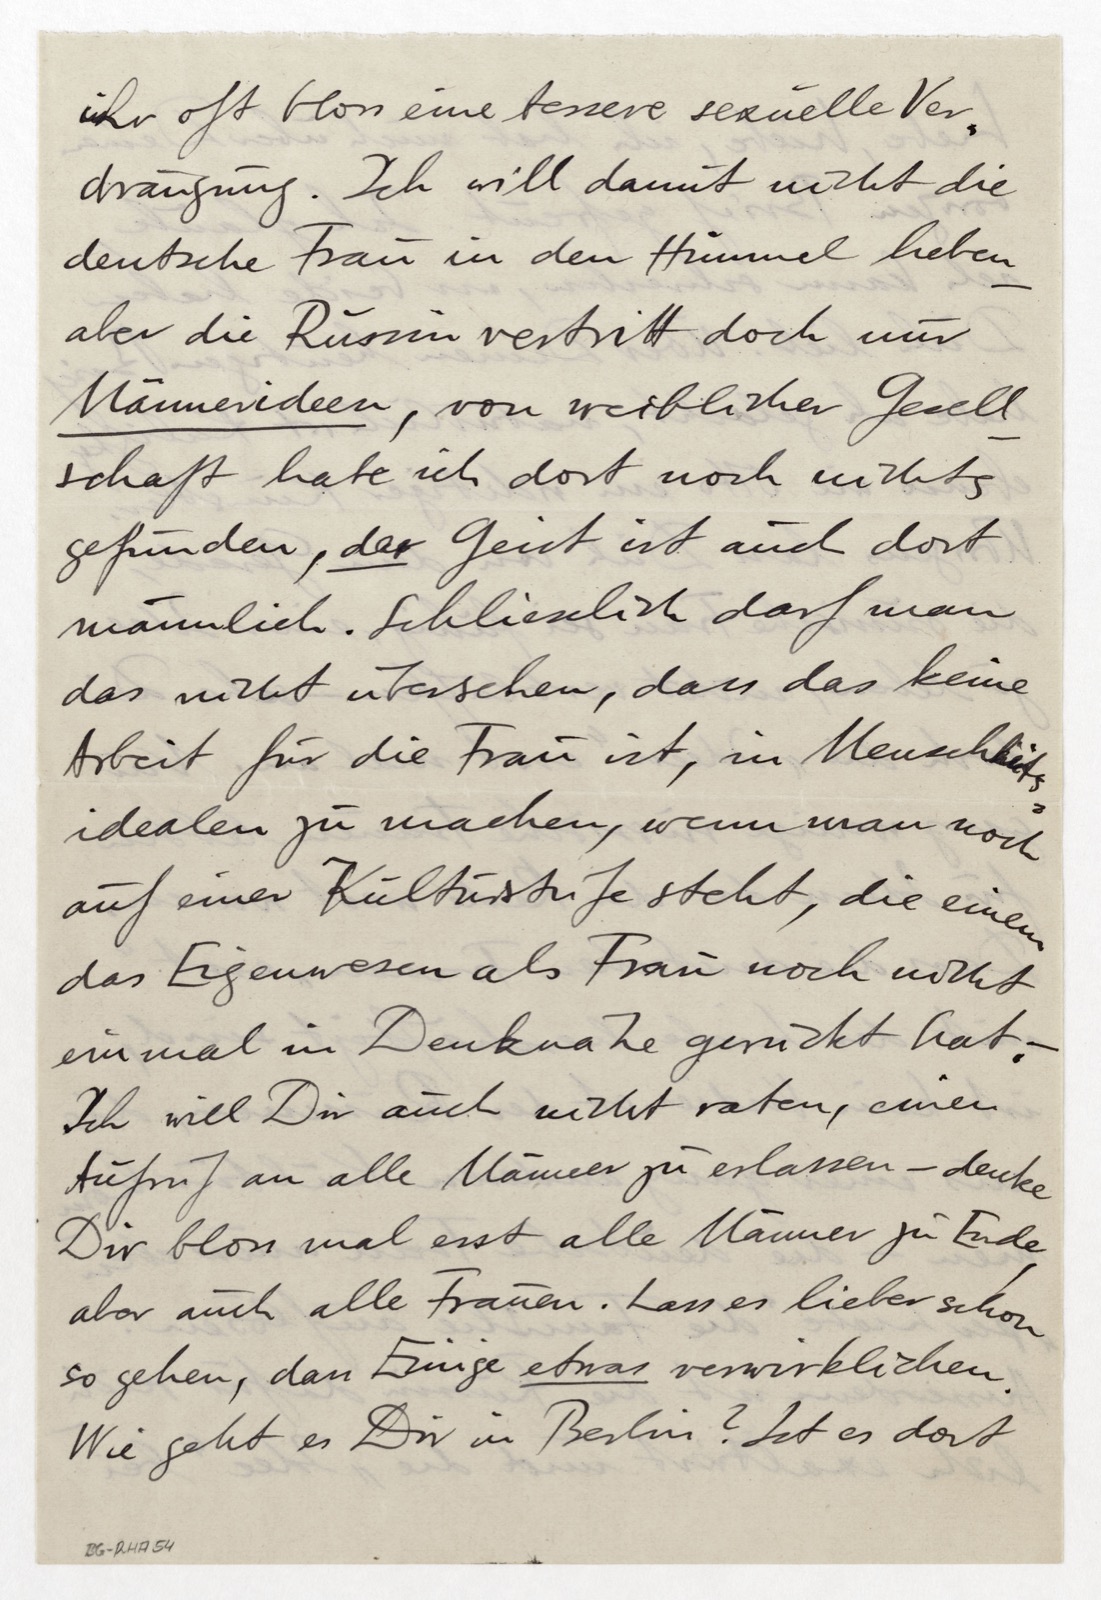 ihr oft bloss eine bessere sexuelle Ver-
drängung. Ich will damit nicht die
deutsche Frau in den Himmel heben –
aber die Russin vertritt doch nur
Männerideen, von weiblicher Gesell-
schaft habe ich dort noch nichts
gefunden, der Geist ist auch dort
männlich. Schliesslich darf man
das nicht übersehen, dass das keine
Arbeit für die Frau ist, in Menschheits-
idealen zu machen, wenn man noch
auf einer Kulturstufe steht, die einem
das Eigenwesen als Frau noch nicht
einmal in Denknähe gerückt hat. –
Ich will Dir auch nicht raten, einen
Aufruf an alle Männer zu erlassen – denke
Dir bloss mal erst alle Männer zu Ende,
aber auch alle Frauen. Lass es lieber schon
so gehen, dass Einige etwas verwirklichen.
Wie geht es Dir in Berlin? Ist es dort
BG-RHA 54